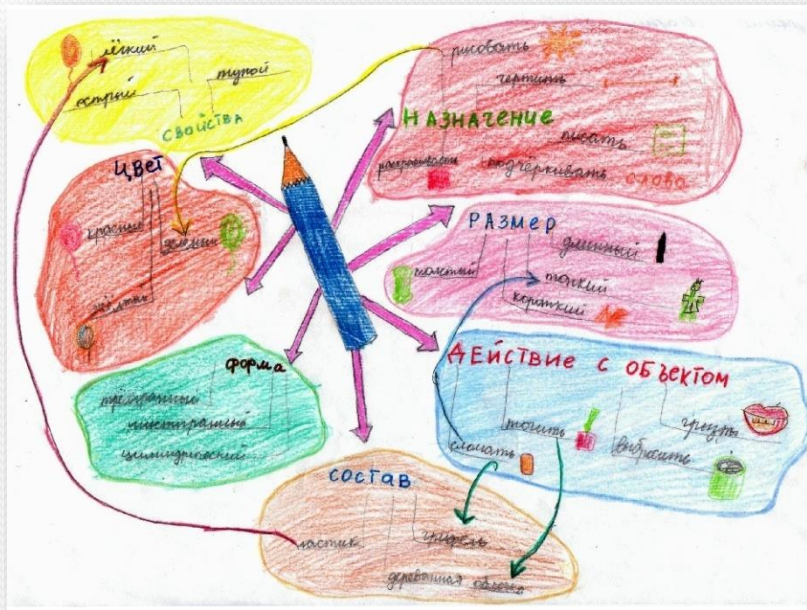 лёгкий
тупой
острый
СВОЙСТВА
рисовать
чертить
НАЗНАЧЕНИЕ
писать
раскрашивать
подчёркивать слова
ЦВЕТ
красный
зелёный
жёлтый
РАЗМЕР
длинный
толстый
тонкий
короткий
ФОРМА
трёхгранный
шестигранный
цилиндрический
ДЕЙСТВИЕ С ОБЪЕКТОМ
точить
грызть
сломать
выбросить
СОСТАВ
ластик
грифель
деревянная оболочка